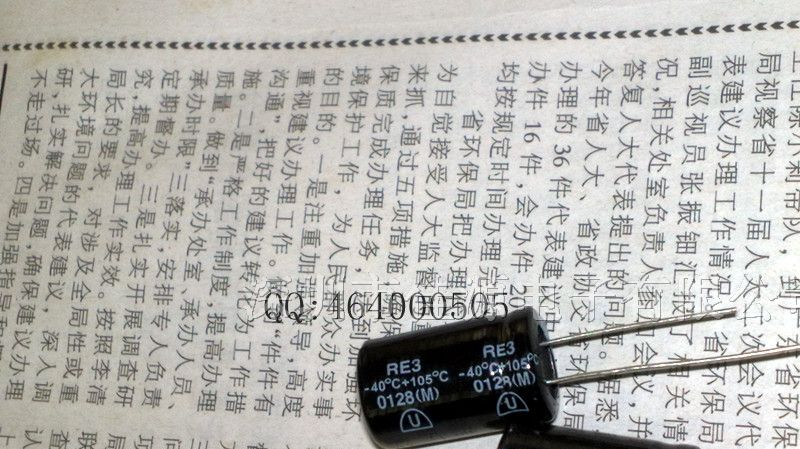 局视察省十一届人大
次会议代
表建议办理工作情况
省环保局
副巡视员张振钿汇报了相关情
况,相关处室负责人参加会议,并
答复人大代表提出的问题。据悉
今年省人大、省政协交省环保局
办理的36件代表建议
办件16件,会办件20
均按规定时间办理完
省环保局把办理
为自觉接受人大监督
来抓,通过五项措施
保质完成办理任务,
到加强环
境保护工作,为人民
众办实事
的目的。一是注重加强
导,高度
重视建议办理工作。做
“件件有
沟通”,把好的建议转化为工作措
施。二是严格工作制度,提高办理
质量。做到“承办处室、承办人员、
承办时限”三落实,安排专人负责、
定期督办。三是扎实开展调查研
究,提高办理工作实效。按照李清
局长的要求,对涉及全局性或重
大环境问题的代表建议,深入调
研,扎实解决问题,确保建议办理
不走过场。四是加强指导
QQ:464000505
RE3
-40°C+105°C
0128(M)
U
RE3
-40°C+105°C
0128(M)
U